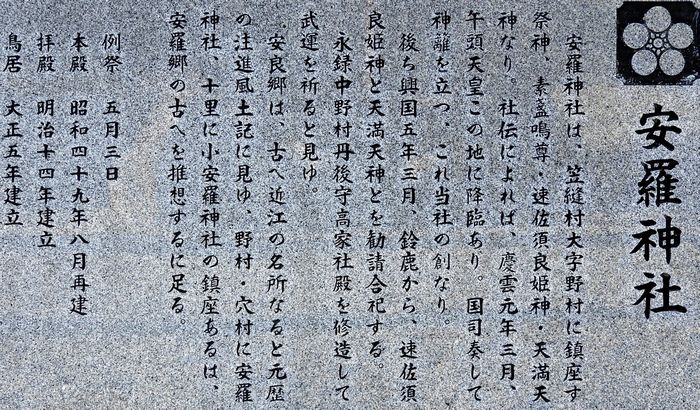 安羅神社
安羅神社は、笠縫村大字野村に鎮座す
祭神、素盞嗚尊・速佐須良姫神・天満天
神なり。社伝によれば、慶雲元年三月、
午頭天皇この地に降臨あり。国司奏して
神籬を立つ。これ当社の創なり。
後ち興国五年三月、鈴鹿から、速佐須
良姫神と天満天神とを勧請合祀する。
永録中野村丹後守高家社殿を修造して
武運を祈ると見ゆ。
安良郷は、古へ近江の名所なると元歴
の注進風土記に見ゆ、野村・穴村に安羅
神社、十里に小安羅神社の鎮座あるは、
安羅郷の古へを推想するに足る。
例祭 五月三日
本殿 昭和四十九年八月再建
拝殿 明治十四年建立
鳥居 大正五年建立